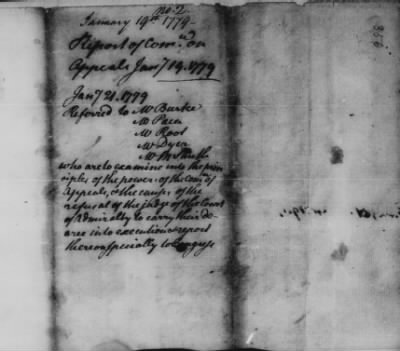 No. 2
January 19th 1779
Report of Comee on
Appeals Jany 19. 1779
Jany 21. 1779
Referred to Mr Burke
Mr Paca
Mr Root
Mr Dyer
Mr
who are to examine into the prin
ciples of the powers of the Comee of
Appeals, & the causes of the
refusal of the judge of the Court
of Admiralty to carry their de-
cree into execution & report
thereon specially to Congress